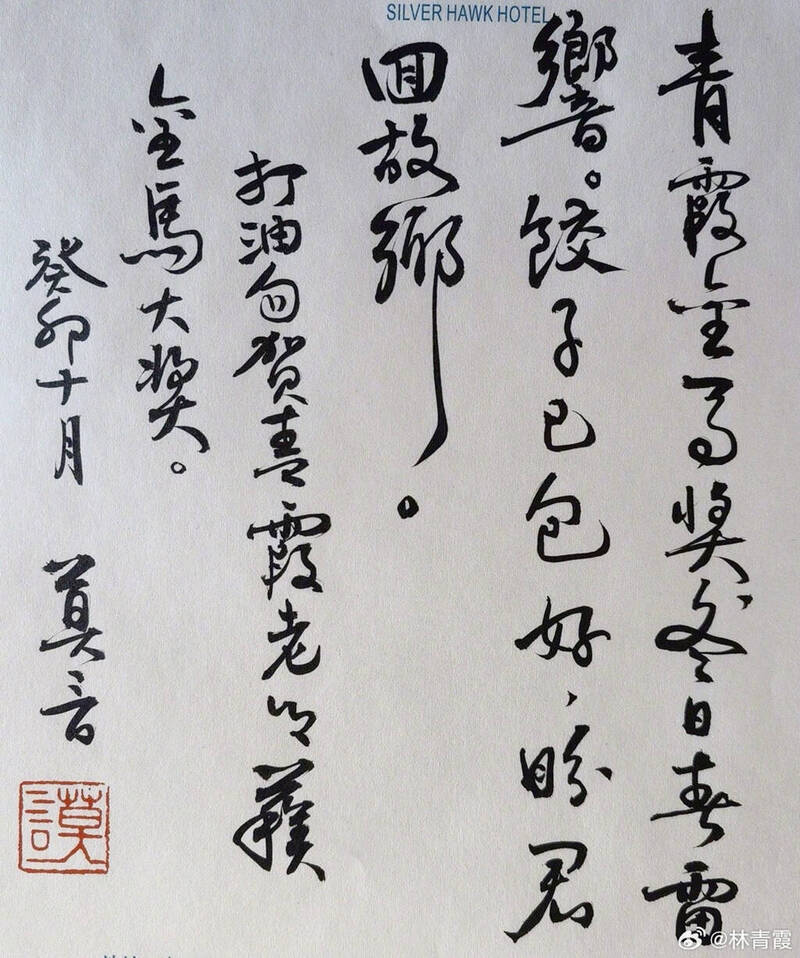 SILVER HAWK HOTEL
青霞金马奖冬日春雷
響。餃子已包好、盼君
囬故鄉。
打油句賀青霞老师獲
金馬大奖。
癸卯十月 莫言
謨
@林青霞